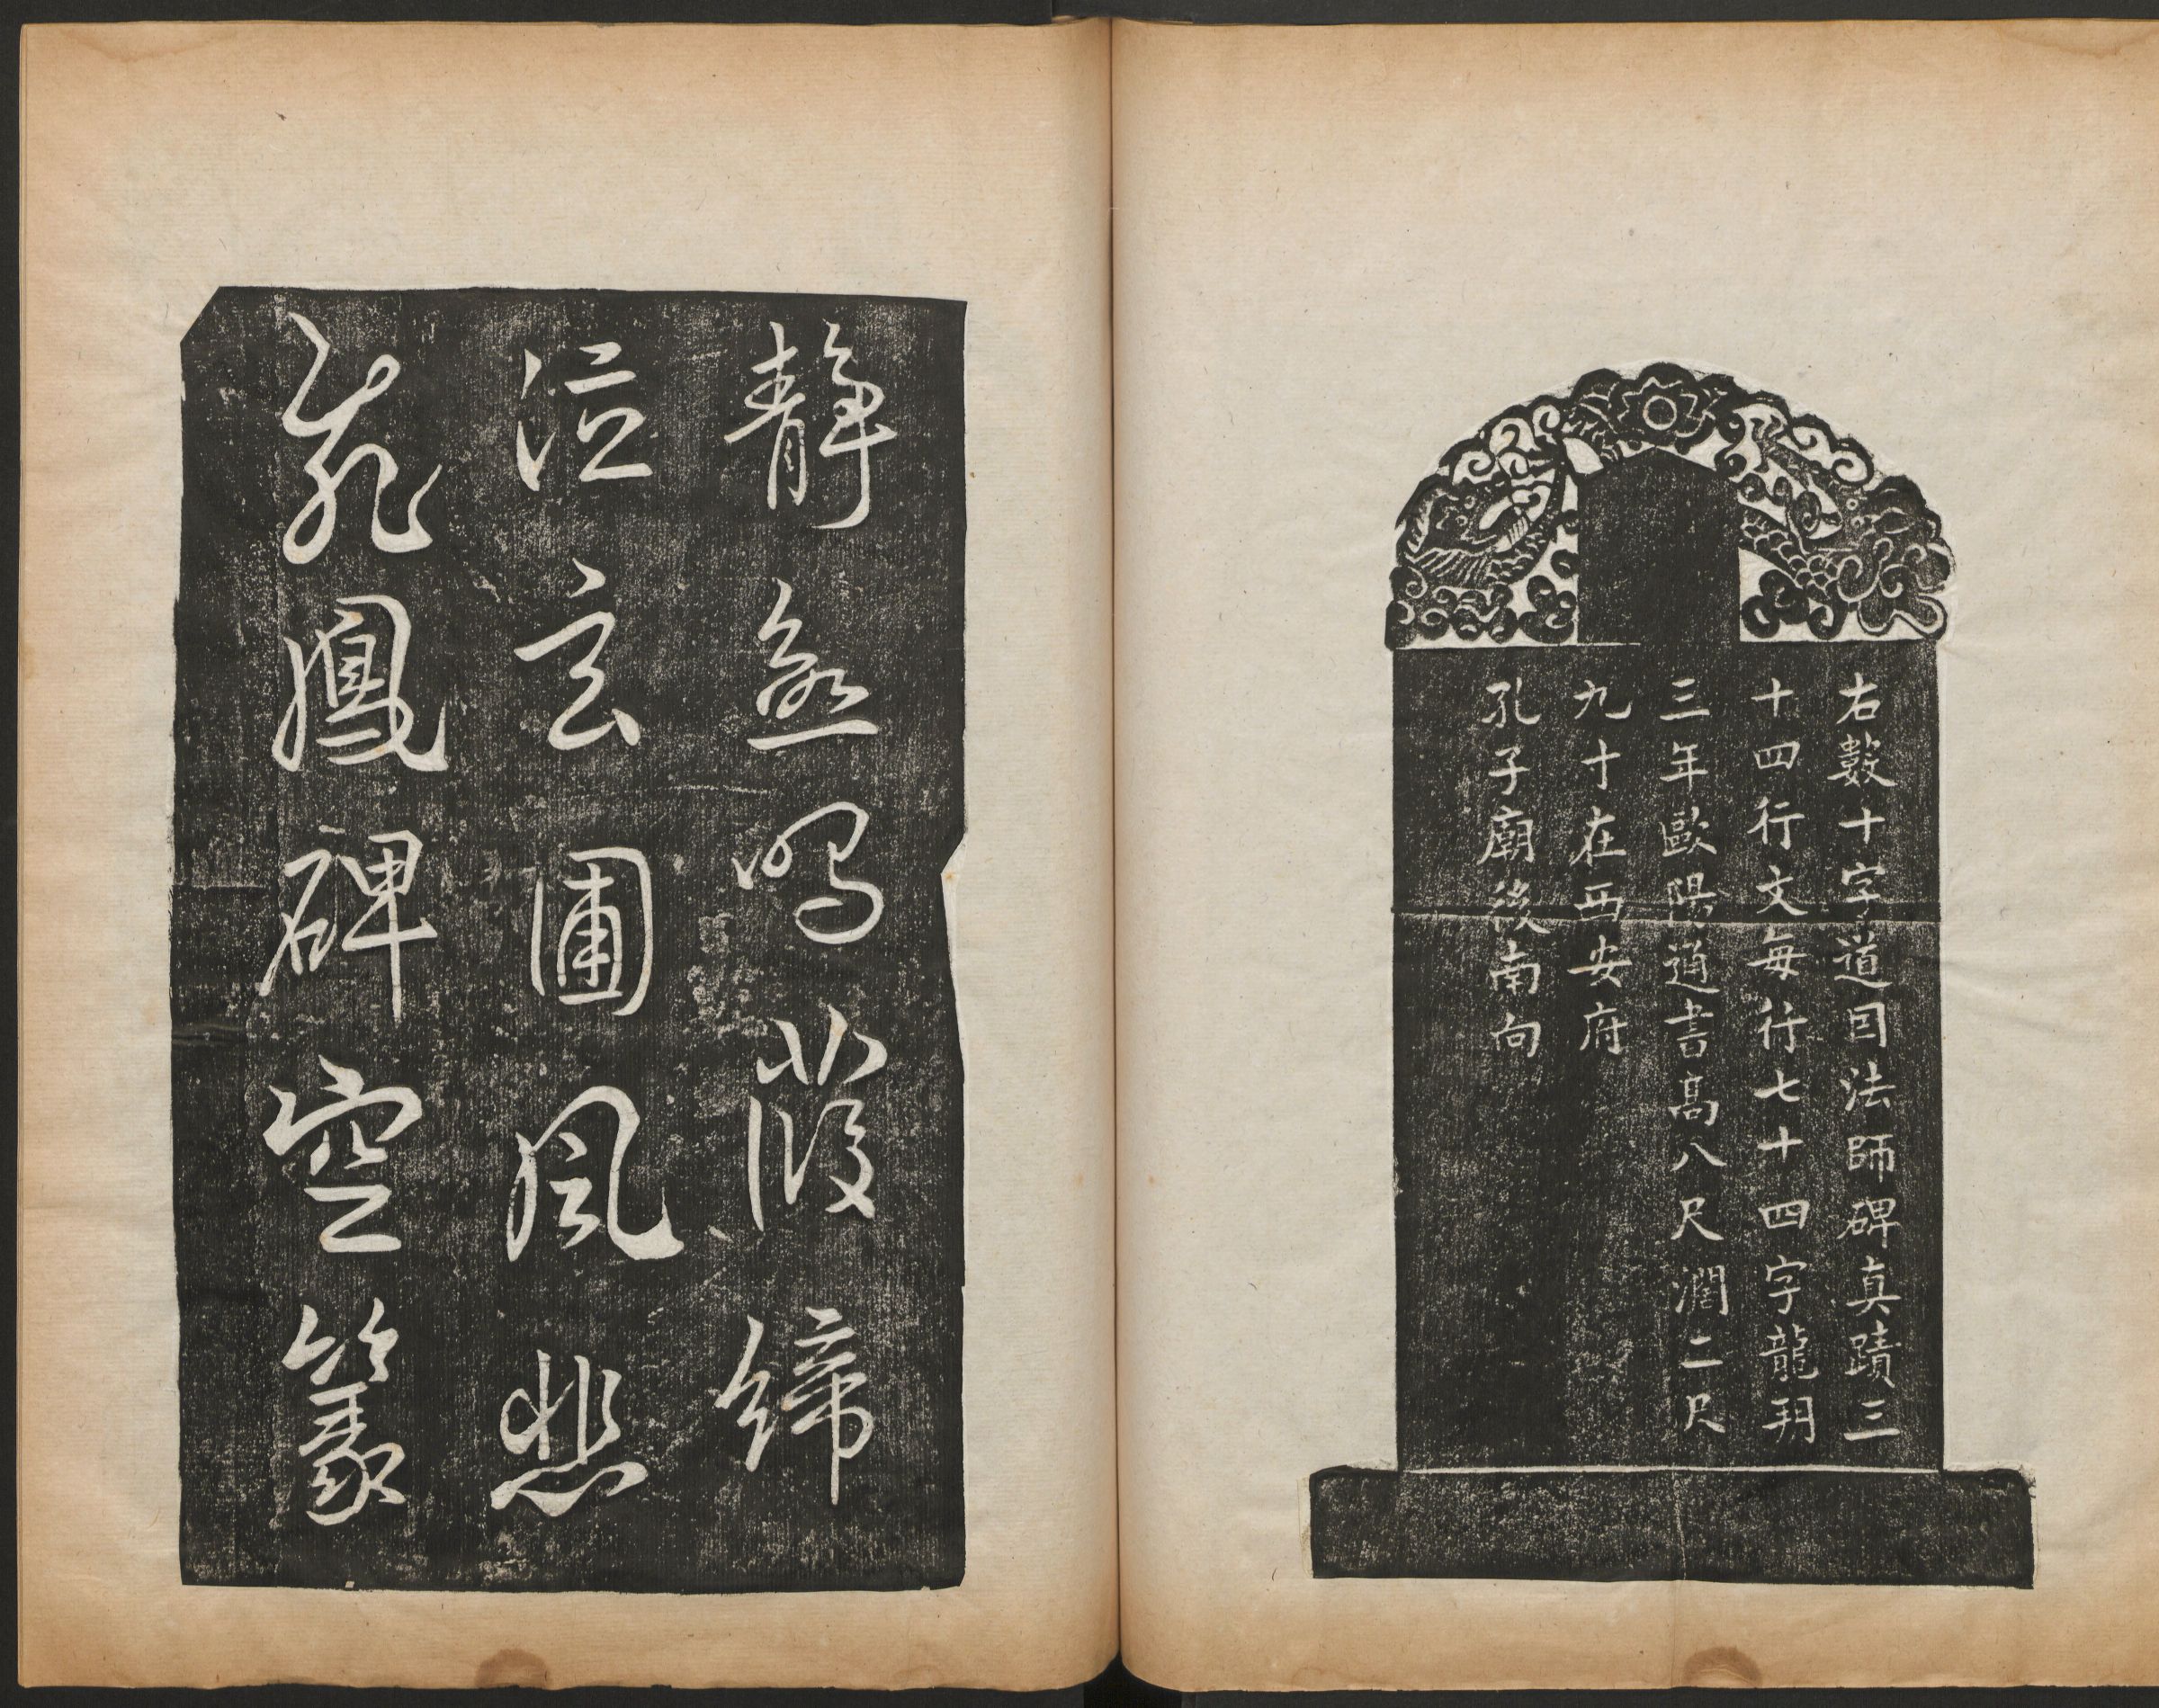 右數十字道因法師碑真蹟三
十四行文每行七十四字龍朔
三年歐陽通書高八尺濶二尺
九寸在西安府
孔子廟後南向
靜鳴葭締
泣玄圃風悲
龍鳳碑空篆